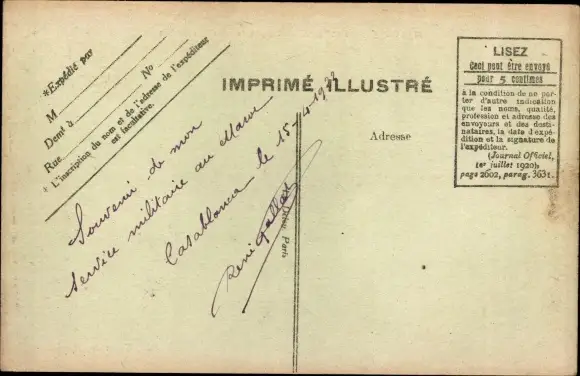 *Expédié par
M
Demt à No
Rue
* L'inscription du nom et de l'adresse de l'expéditeur
est facultative.
IMPRIMÉ ILLUSTRÉ
LISEZ
Ceci peut être envoyé
pour 5 centimes
à la condition de ne por-
ter d'autre indication
que les noms, qualité,
profession et adresse des
envoyeurs et des desti-
nataires, la date d'expé-
dition et la signature de
l'expéditeur.
(Journal Officiel,
1er juillet 1920),
page 2602, parag. 3631.
Adresse
Souvenir de mon
service militaire au Maroc
Casablanca le 15-4-1922
René Gallax
Paris